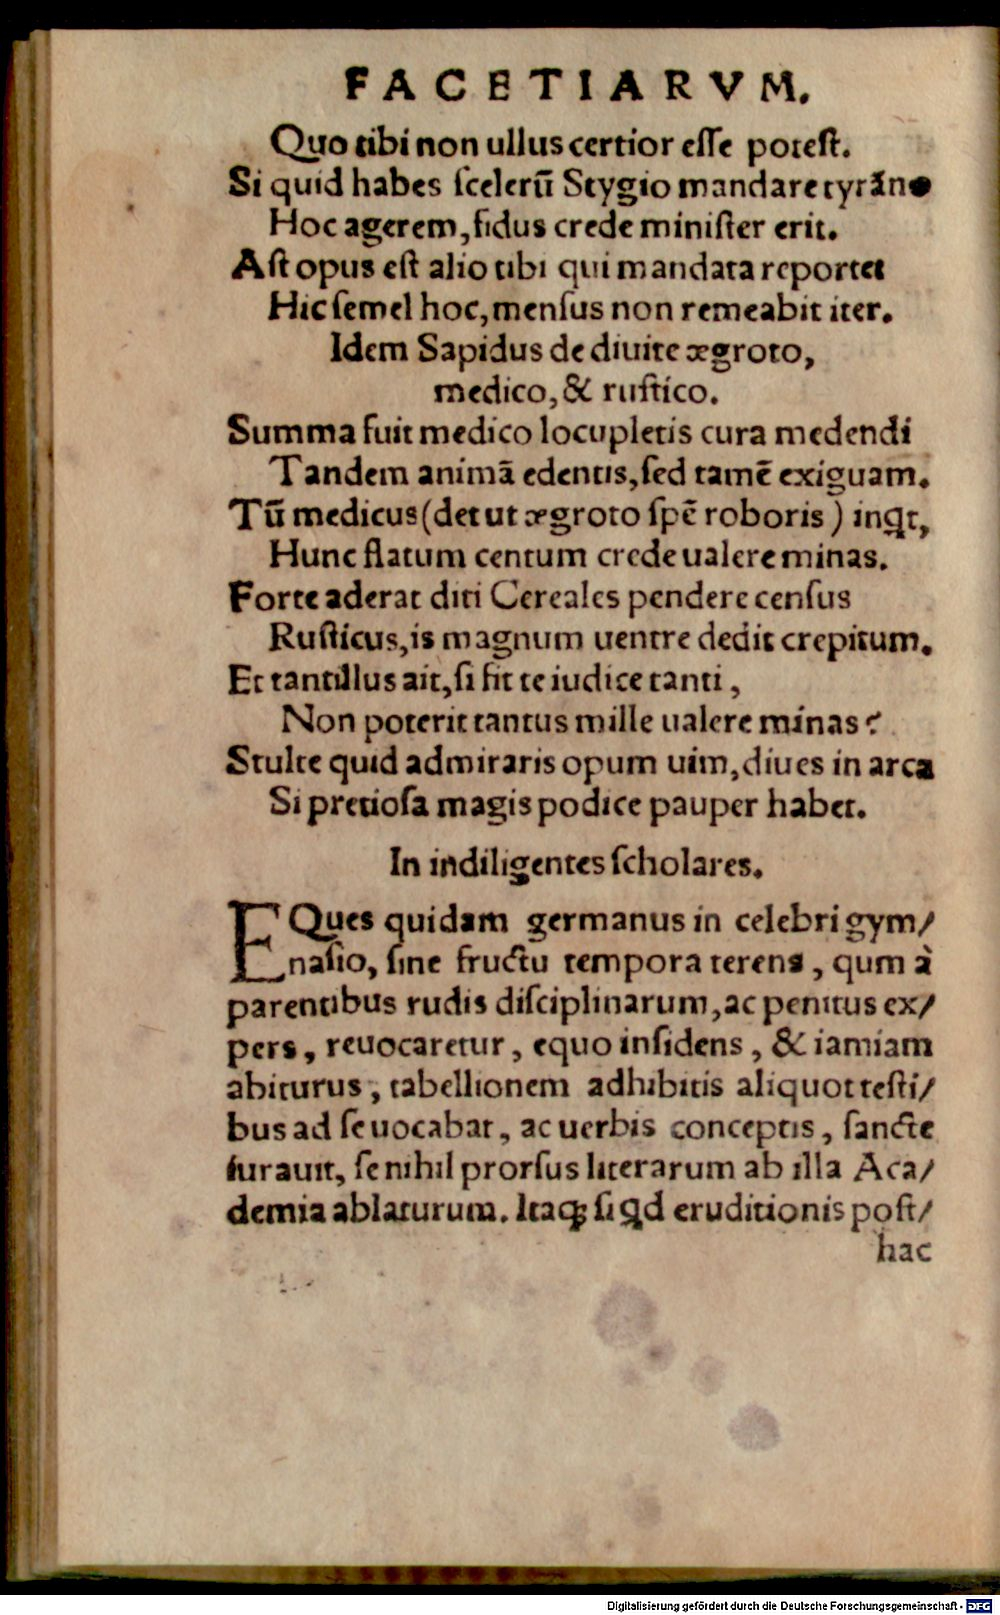 FACETIARVM.
Quo tibi non ullus certior esse potest.
Si quid habes scelerū Stygio mandare tyrāno
Hoc agerem, fidus crede minister erit.
Ast opus est alio tibi qui mandata reportet
Hic semel hoc, mensus non remeabit iter.
Idem Sapidus de diuite ægroto,
medico, & rustico.
Summa fuit medico locupletis cura medendi
Tandem animā edentis, sed tamē exiguam.
Tū medicus (det ut ægroto spē roboris) inqt,
Hunc flatum centum crede ualere minas.
Forte aderat diti Cereales pendere census
Rusticus, is magnum uentre dedit crepitum.
Et tantillus ait, si fit te iudice tanti,
Non poterit tantus mille ualere minas?
Stulte quid admiraris opum uim, diues in arca
Si pretiosa magis podice pauper habet.
In indiligentes scholares.
EQues quidam germanus in celebri gym/
nasio, sine fructu tempora terens, qum à
parentibus rudis disciplinarum, ac penitus ex/
pers, reuocaretur, equo insidens, & iamiam
abiturus, tabellionem adhibitis aliquot testi/
bus ad se uocabat, ac uerbis conceptis, sancte
iurauit, se nihil prorsus literarum ab illa Aca/
demia ablaturum. Itaqꝫ si qd eruditionis post/
hac
Digitalisierung gefördert durch die Deutsche Forschungsgemeinschaft - DFG